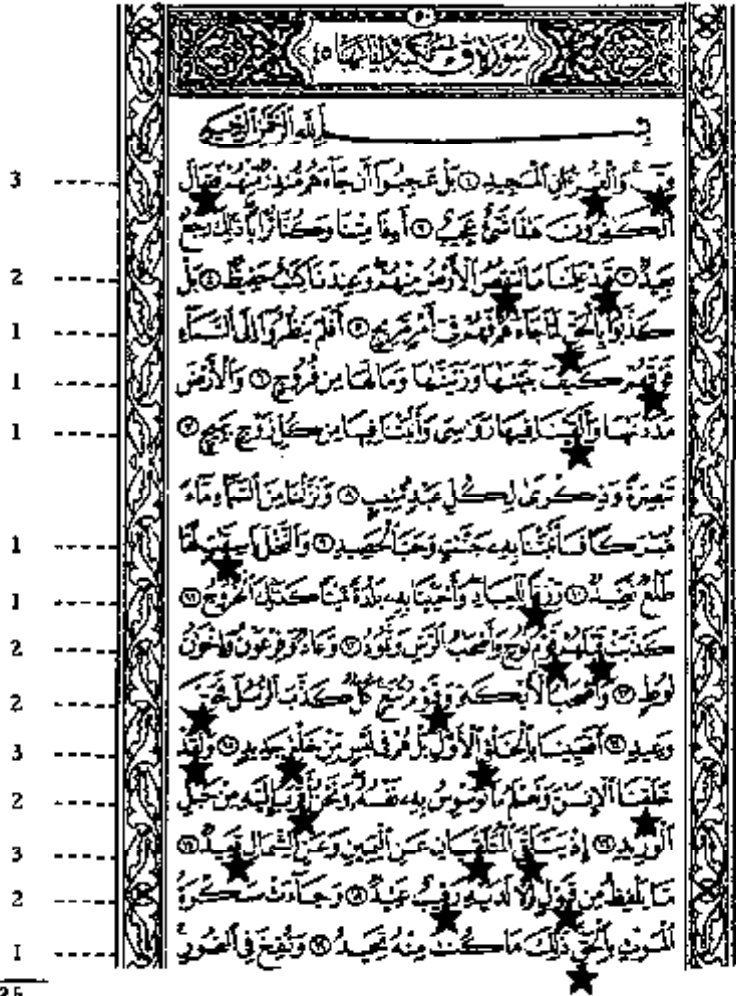 ٥٠
سُورَةُ ق مَكِّيَّة وَآيَاتُهَا ٤٥
بِسْمِ ٱللَّهِ ٱلرَّحْمَٰنِ ٱلرَّحِيمِ
3 قٓ وَٱلْقُرْءَانِ ٱلْمَجِيدِ ١ بَلْ عَجِبُوٓا۟ أَن جَآءَهُم مُّنذِرٌ مِّنْهُمْ فَقَالَ
ٱلْكَٰفِرُونَ هَٰذَا شَىْءٌ عَجِيبٌ ٢ أَءِذَا مِتْنَا وَكُنَّا تُرَابًا ذَٰلِكَ رَجْعٌۢ
2 بَعِيدٌ ٣ قَدْ عَلِمْنَا مَا تَنقُصُ ٱلْأَرْضُ مِنْهُمْ وَعِندَنَا كِتَٰبٌ حَفِيظٌۢ ٤ بَلْ
1 كَذَّبُوا۟ بِٱلْحَقِّ لَمَّا جَآءَهُمْ فَهُمْ فِىٓ أَمْرٍ مَّرِيجٍ ٥ أَفَلَمْ يَنظُرُوٓا۟ إِلَى ٱلسَّمَآءِ
1 فَوْقَهُمْ كَيْفَ بَنَيْنَٰهَا وَزَيَّنَّٰهَا وَمَا لَهَا مِن فُرُوجٍ ٦ وَٱلْأَرْضَ
1 مَدَدْنَٰهَا وَأَلْقَيْنَا فِيهَا رَوَٰسِىَ وَأَنۢبَتْنَا فِيهَا مِن كُلِّ زَوْجٍۭ بَهِيجٍ ٧
تَبْصِرَةً وَذِكْرَىٰ لِكُلِّ عَبْدٍ مُّنِيبٍ ٨ وَنَزَّلْنَا مِنَ ٱلسَّمَآءِ مَآءً
1 مُّبَٰرَكًا فَأَنۢبَتْنَا بِهِۦ جَنَّٰتٍ وَحَبَّ ٱلْحَصِيدِ ٩ وَٱلنَّخْلَ بَاسِقَٰتٍ لَّهَا
1 طَلْعٌ نَّضِيدٌ ١٠ رِّزْقًا لِّلْعِبَادِ وَأَحْيَيْنَا بِهِۦ بَلْدَةً مَّيْتًا كَذَٰلِكَ ٱلْخُرُوجُ ١١
2 كَذَّبَتْ قَبْلَهُمْ قَوْمُ نُوحٍ وَأَصْحَٰبُ ٱلرَّسِّ وَثَمُودُ ١٢ وَعَادٌ وَفِرْعَوْنُ وَإِخْوَٰنُ
2 لُوطٍ ١٣ وَأَصْحَٰبُ ٱلْأَيْكَةِ وَقَوْمُ تُبَّعٍ كُلٌّ كَذَّبَ ٱلرُّسُلَ فَحَقَّ
3 وَعِيدِ ١٤ أَفَعَيِينَا بِٱلْخَلْقِ ٱلْأَوَّلِ بَلْ هُمْ فِى لَبْسٍ مِّنْ خَلْقٍ جَدِيدٍ ١٥ وَلَقَدْ
2 خَلَقْنَا ٱلْإِنسَٰنَ وَنَعْلَمُ مَا تُوَسْوِسُ بِهِۦ نَفْسُهُۥ وَنَحْنُ أَقْرَبُ إِلَيْهِ مِنْ حَبْلِ
3 ٱلْوَرِيدِ ١٦ إِذْ يَتَلَقَّى ٱلْمُتَلَقِّيَانِ عَنِ ٱلْيَمِينِ وَعَنِ ٱلشِّمَالِ قَعِيدٌ ١٧
2 مَّا يَلْفِظُ مِن قَوْلٍ إِلَّا لَدَيْهِ رَقِيبٌ عَتِيدٌ ١٨ وَجَآءَتْ سَكْرَةُ
1 ٱلْمَوْتِ بِٱلْحَقِّ ذَٰلِكَ مَا كُنتَ مِنْهُ تَحِيدُ ١٩ وَنُفِخَ فِى ٱلصُّورِ